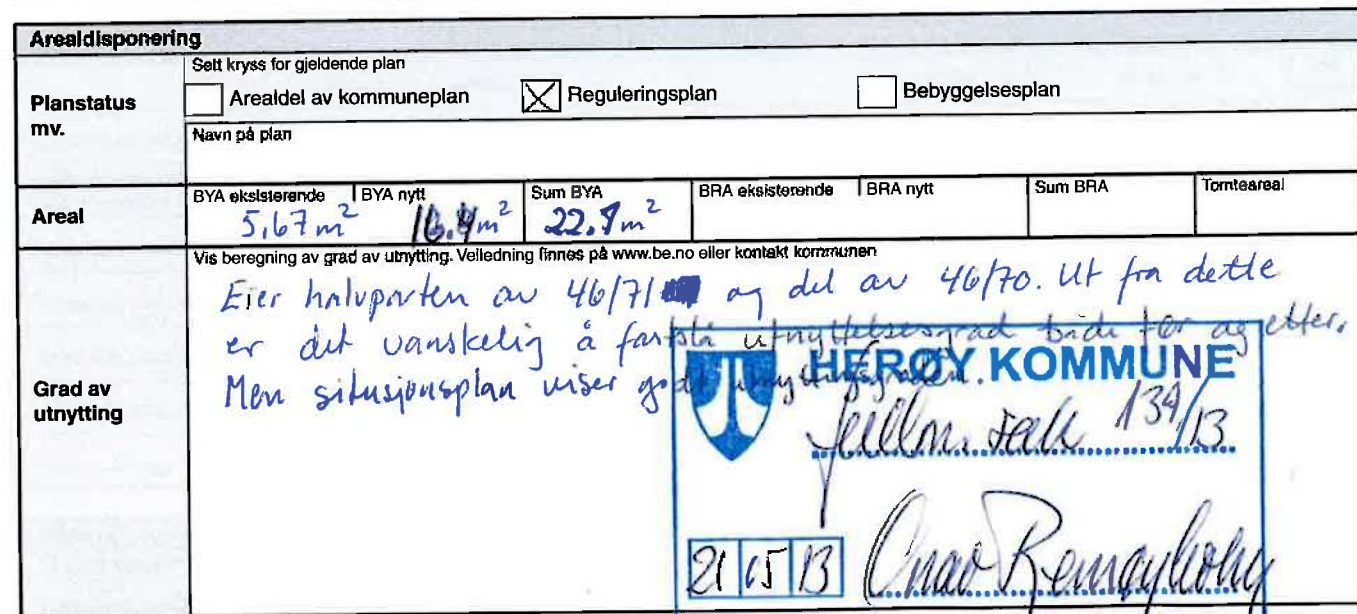 Arealdisponering
Planstatus mv.
Sett kryss for gjeldende plan
Arealdel av kommuneplan Reguleringsplan Bebyggelsesplan
Navn på plan
Areal
BYA eksisterende BYA nytt Sum BYA BRA eksisterende BRA nytt Sum BRA Tomteareal
5,67 m² m² m²
Grad av utnytting
Vis beregning av grad av utnytting. Veiledning finnes på www.be.no eller kontakt kommunen
Eier halvparten av 46/71 og del av 46/70. Ut fra dette
er det vanskelig å fastslå utnyttelsesgrad både før og etter.
Men situsjonsplan viser godt utnyttingsgraden.
HERØY KOMMUNE
sak 134/13
21 05 13